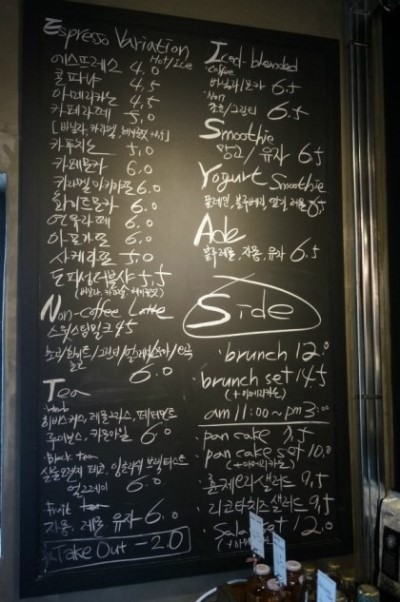 Espresso Variation
Hot/Ice
에스프레소 4.0
콘파냐 4.5
아메리카노 4.5
카페라떼 5.0
[바닐라, 카라멜, 헤이즐넛]
카푸치노 5.0
카페모카 6.0
카라멜마끼아또 6.0
화이트모카 6.0
연유라떼 6.0
아포가또 6.0
샤케라또 5.0
도피오더블샷 5.5
Non-coffee Latte
스윗스팀밀크 4.5
6.0
Tea
Herb
히비스커스, 레몬그라스, 페퍼민트
루이보스, 카모마일 6.0
Black tea
얼그레이 6.0
Fruit tea
자몽, 레몬, 유자 6.0
Take Out -2.0
Iced-blended
Coffee
바닐라/모카 6.5
Non
초코/그린티 6.5
Smoothie
망고/유자 6.5
Yogurt Smoothie
플레인, 블루베리, 딸기, 레몬 6.5
Ade
블루레몬, 자몽, 유자 6.5
Side
·brunch 12.0
·brunch set 14.5
(+아메리카노)
am 11:00~pm 3:00
·pan cake 7.5
pan cake set 10.0
(+아메리카노)
·훈제오리샐러드 9.5
·리코타치즈샐러드 9.5
·Salad set 12.0